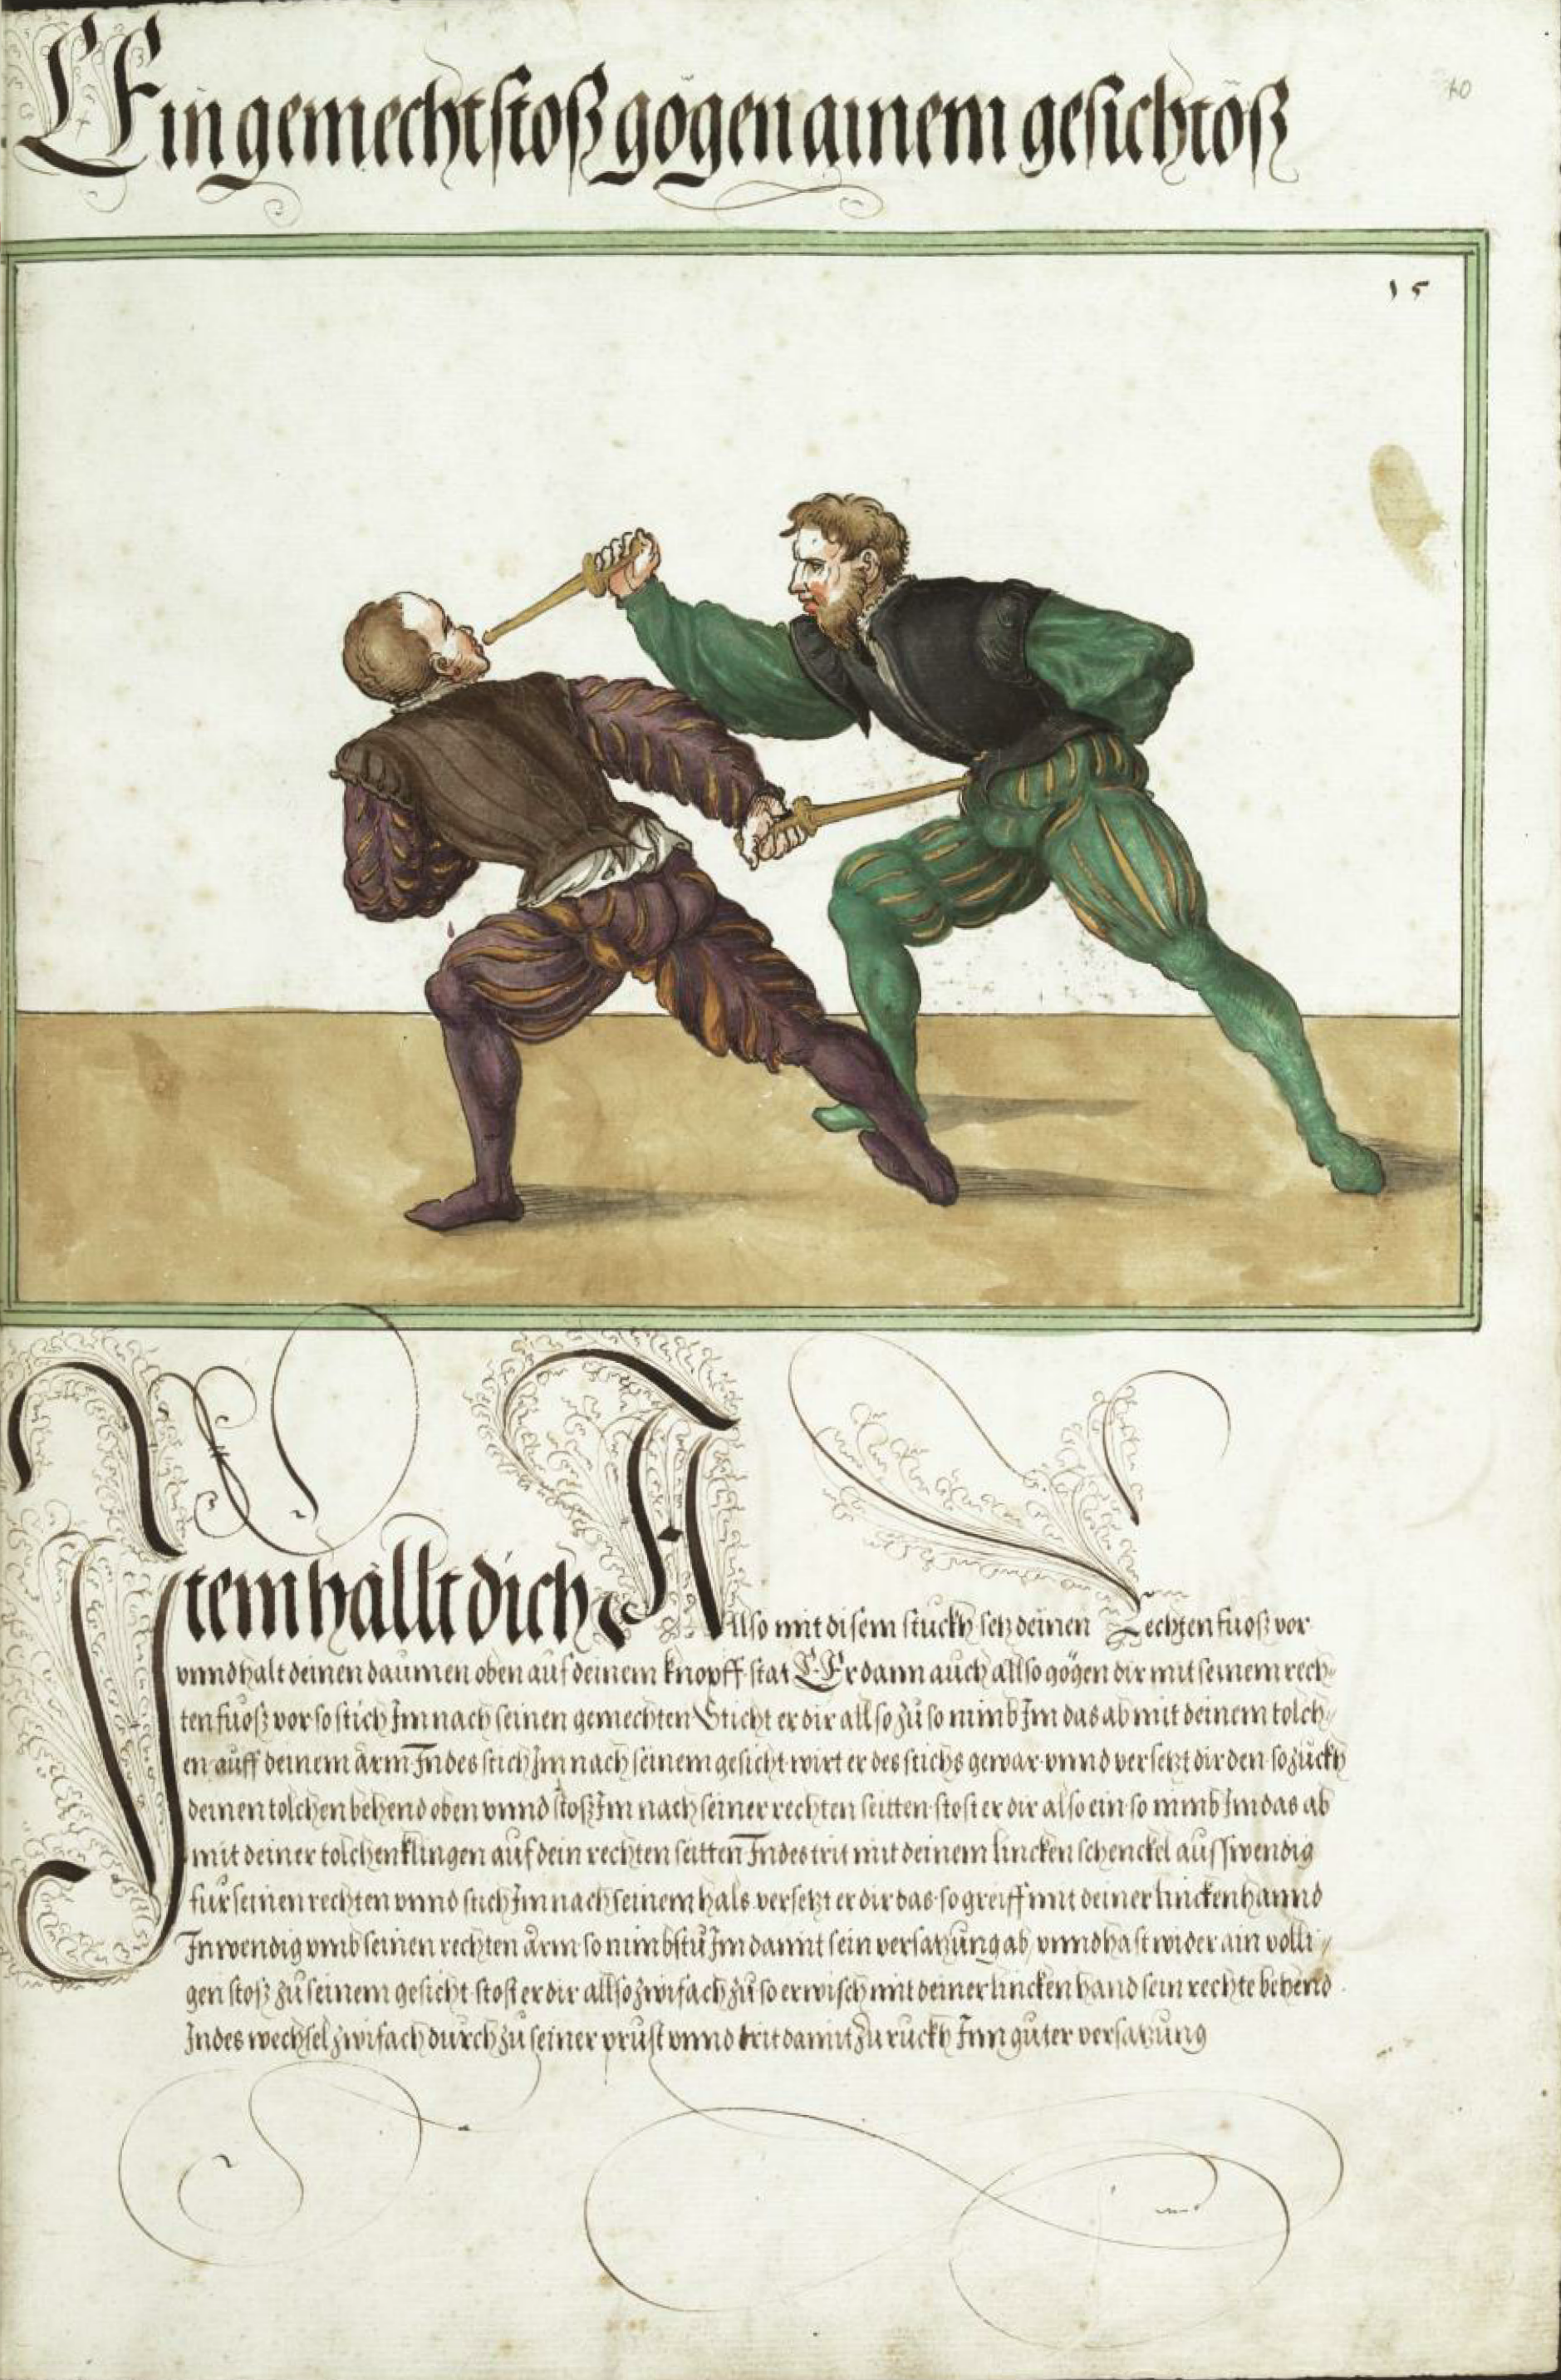 Ein gemechtstoß gögen ainem gesichtöß
40
15
Item hallt dich Allso mit disem stuckh setz deinen Rechten fuosz vor
vnnd halt deinen daumen oben auf deinem knopff stat Er dann auch allso gögen dir mit seinem rech-
ten fuosz vor so stich Im nach seinen gemechten Sticht er dir allso zů so nimb Im das ab mit deinem tolch-
en auff deinem arm Indes stich Im nach seinem gesicht wirt er des stichs gewar vnnd versetzt dir den so zuckh
deinen tolchen behend oben vnnd stosz Im nach seiner rechten seitten stost er dir also ein so nimb Im das ab
mit deiner tolchen klingen auf dein rechten seitten Indes trit mit deinem lincken schenckel ausswendig
für seinen rechten vnnd stich Im nach seinem hals versetzt er dir das so greiff mit deiner lincken hannd
Inwendig vmb seinen rechten arm so nimbstu Im damit sein versatzung ab vnnd hast wider ain volli-
gen stosz zů seinem gesicht stost er dir allso zwifach zů so erwisch mit deiner lincken hand sein rechte behend
Indes wechsel zwifach durch zu seiner prust vnnd trit damit zu ruckh Inn guter versatzung